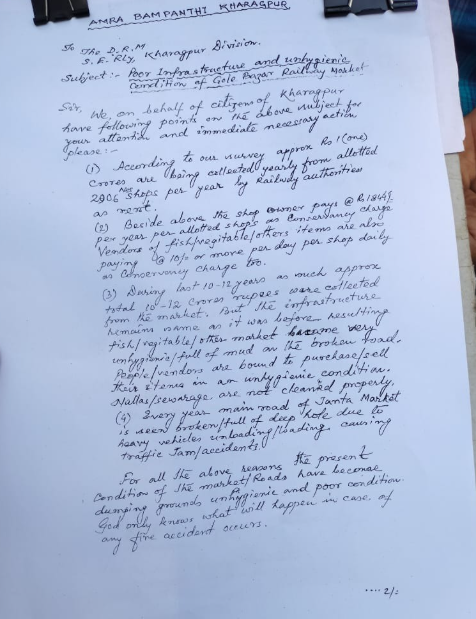 AMRA BAMPANTHI KHARAGPUR
To The D.R.M
S.E. Rly, Kharagpur Division.
Subject :- Poor Infrastructure and unhygienic
Condition of Gole Bazar Railway Market
Sir, We, on behalf of citizens of Kharagpur
have following points on the above subject for
your attention and immediate necessary action,
please:-
(1) According to our survey approx Rs 1 (one)
Crores are being collected yearly from allotted
2906 Nos shops per year by Railway authorities
as rent.
(2) Beside above the shop owner pays @ Rs
per year per allotted shops as Conservancy charge
Vendors of fish/vegitable/others items are also
paying @ 10/= or more per day per shop daily
as Conservancy charge too.
(3) During last 10-12 years as much approx
total 10-12 Crores rupees were collected
from the market. But the infrastructure
remains same as it was before resulting
fish/vegitable/other market became very
unhygienic/full of mud on the broken road.
People/vendors are bound to purchase/sell
their items in an unhygienic condition.
Nallas/sewarage are not cleaned properly.
(4) Every year main road of Janta Market
is seen broken/full of deep hole due to
heavy vehicles unloading/loading causing
traffic Jam/accidents.
For all the above reasons the present
Condition of the market/Roads have become
dumping grounds unhygienic and poor condition.
God only knows what will happen in case of
any fire accident occurs.
.... 2/=